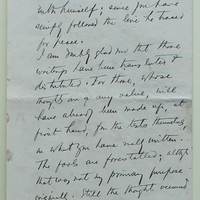 with himself; since you have
simply followed the line he traced
for peace.
I am mighty glad now that those
writings have been translated &
distributed. For those, whose
thoughts are of any value, will
have already been made up, at
first hand, for the texts themselves,
in what you have really written.
The fools are forestalled; altho'
that was not my primary purpose
Still the thought occurred